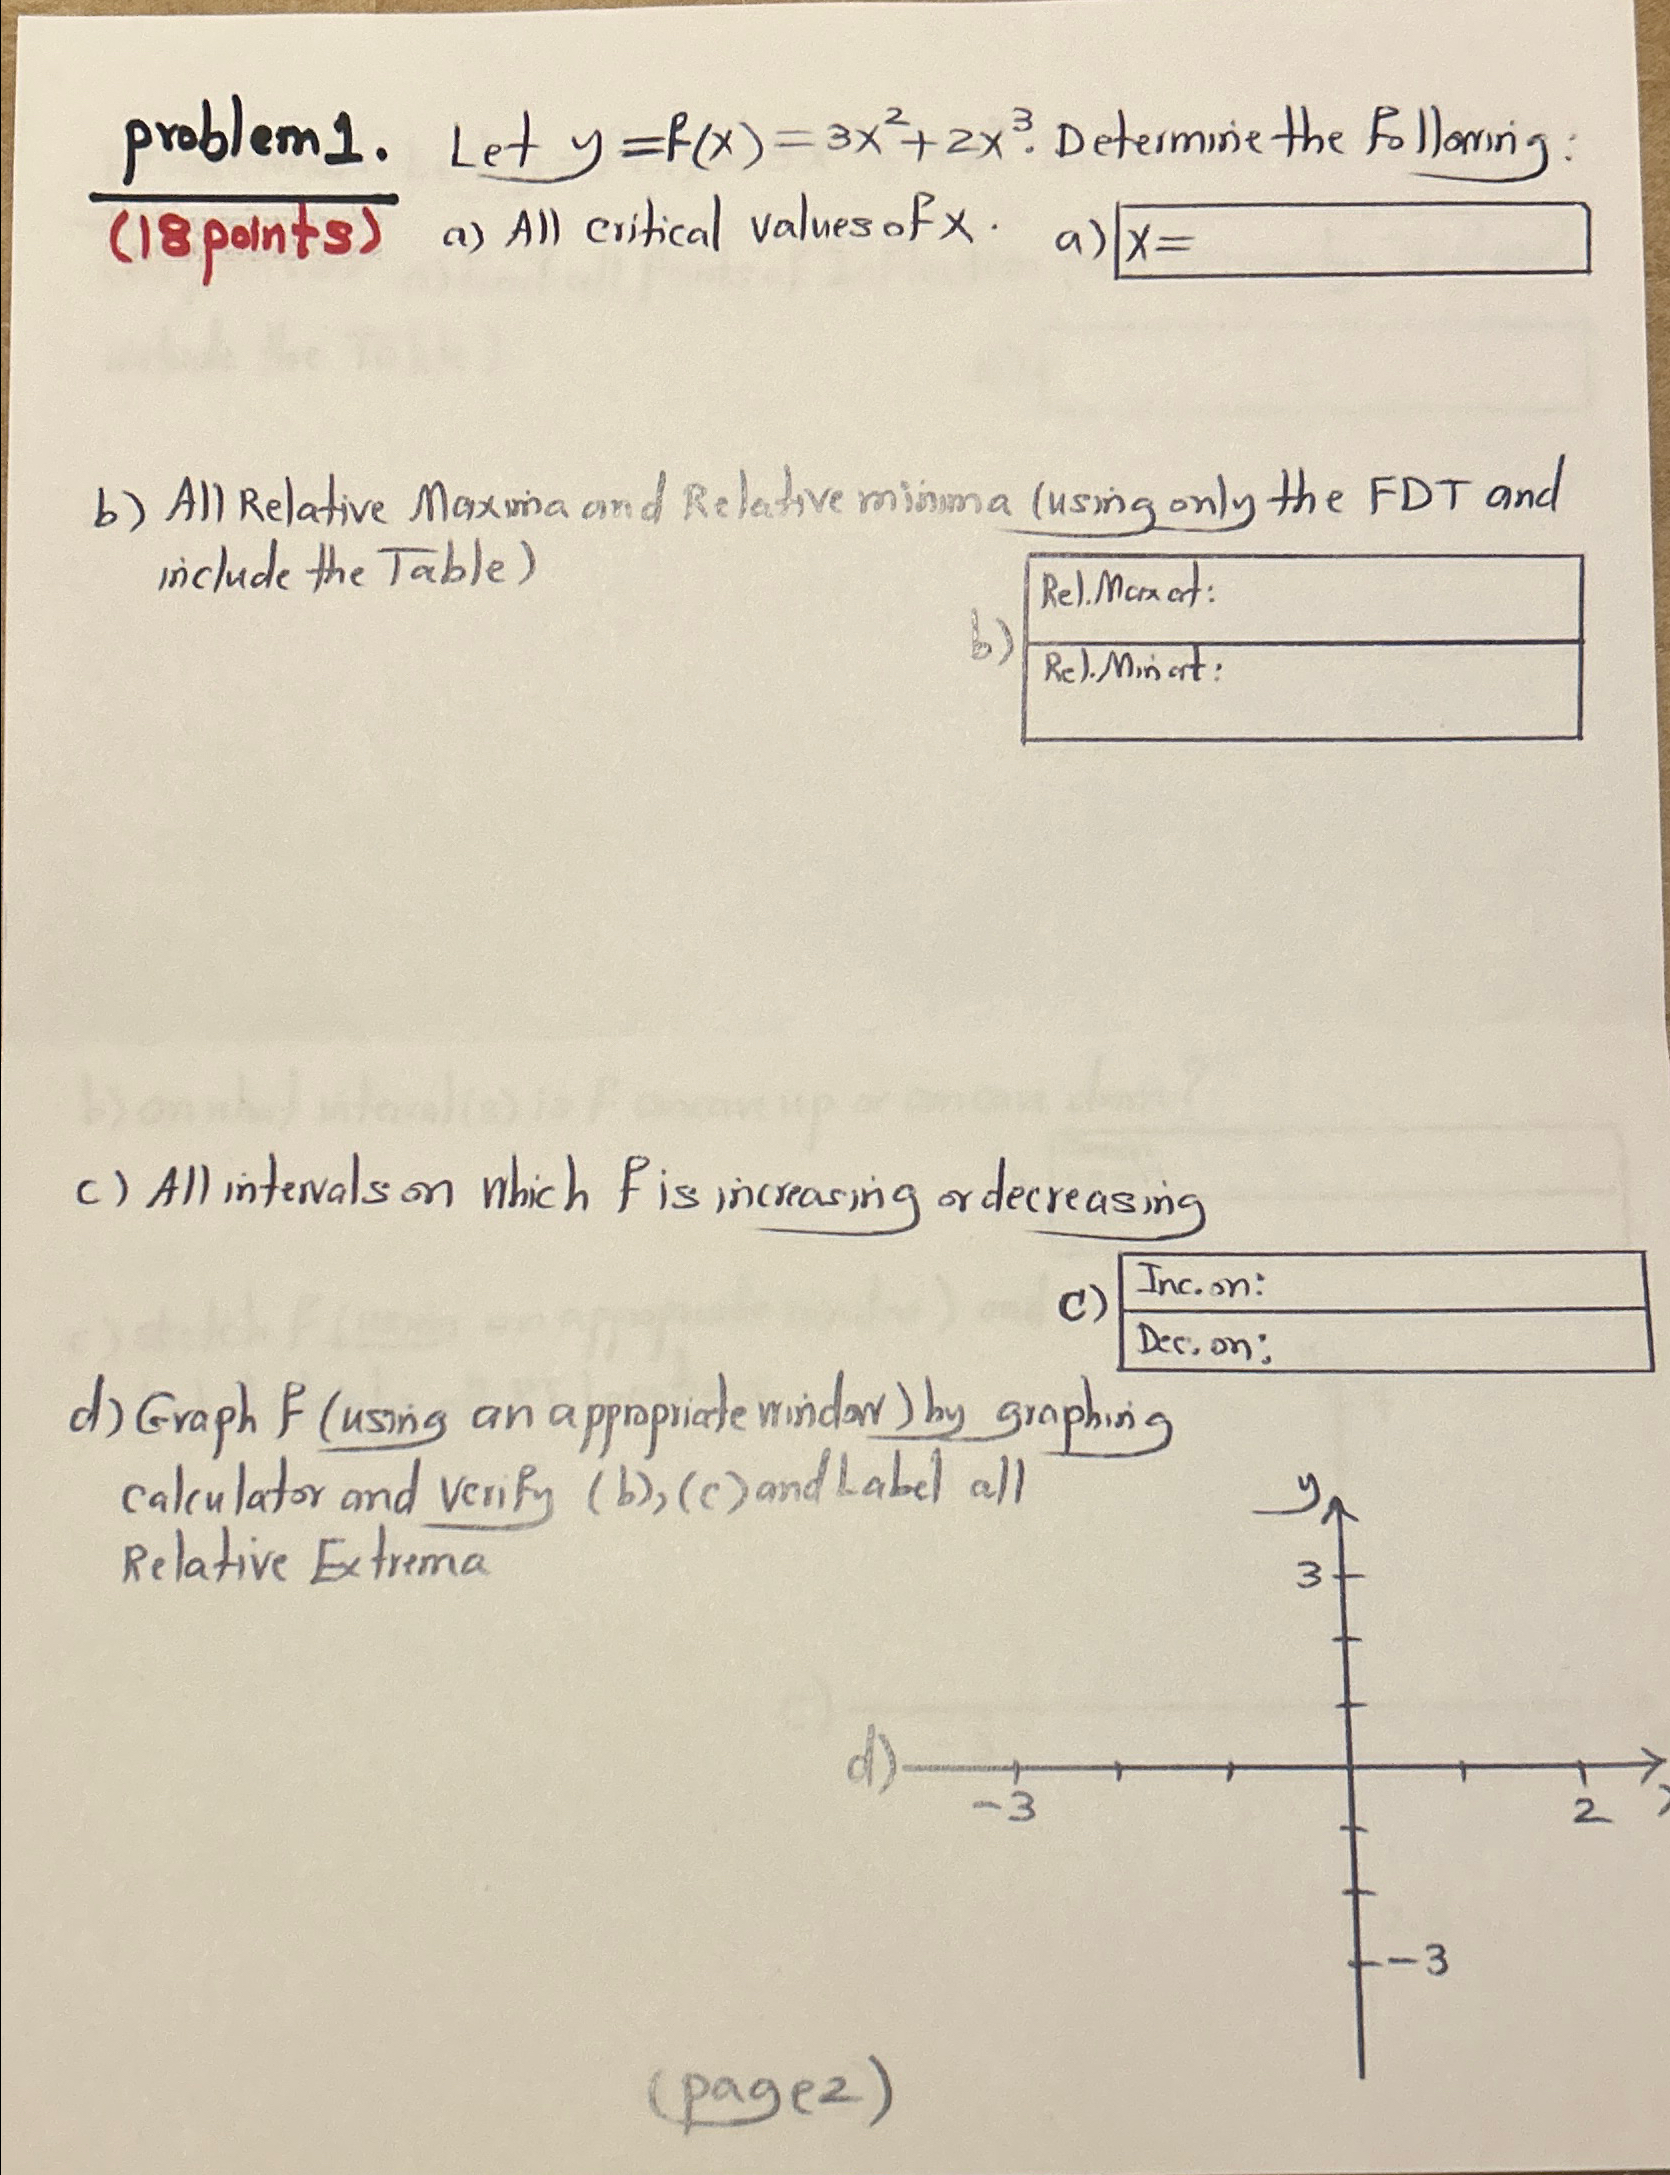 problem 1. Let y = f(x) = 3x² + 2x³. Determine the following:
(18 points) a) All critical values of x. a) x=
b) All Relative Maxima and Relative minima (using only the FDT and
include the Table)
Rel. Max at:
b)
Rel. Min at:
c) All intervals on which f is increasing or decreasing
Inc. on:
c)
Dec. on:
d) Graph f (using an appropriate window) by graphing
calculator and verify (b), (c) and Label all
Relative Extrema
y
3
d)
-3 2 x
-3
(page 2)